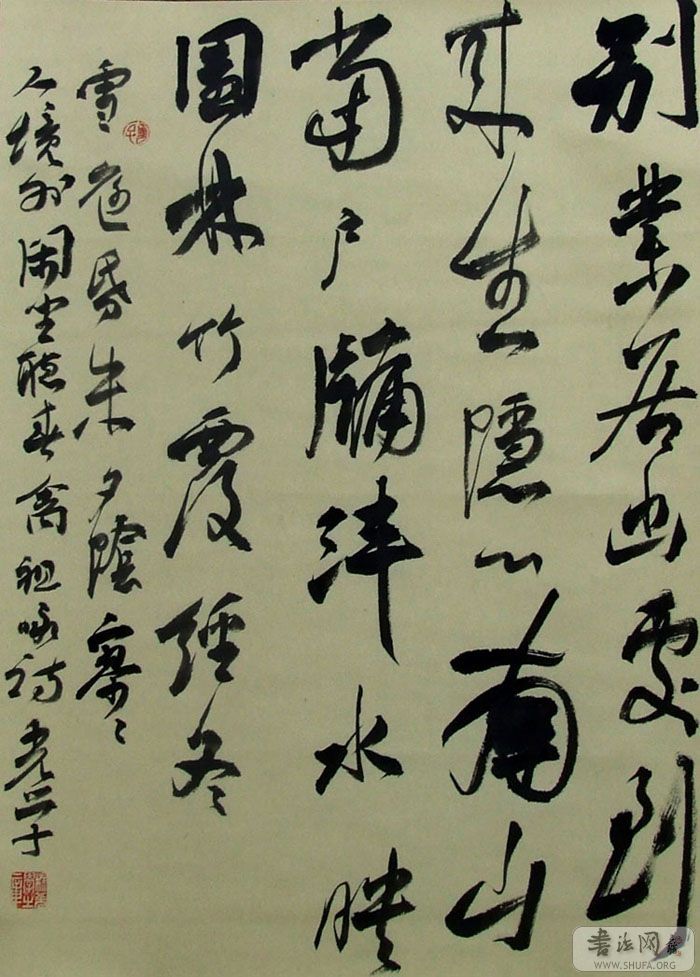 别業居幽處到
来生隱心南山
當户牖沣水映
園林竹覆經冬
雪庭昏未夕陰寥〻
人境外閑坐聽春禽祖咏詩
書法网
WWW.SHUFA.ORG